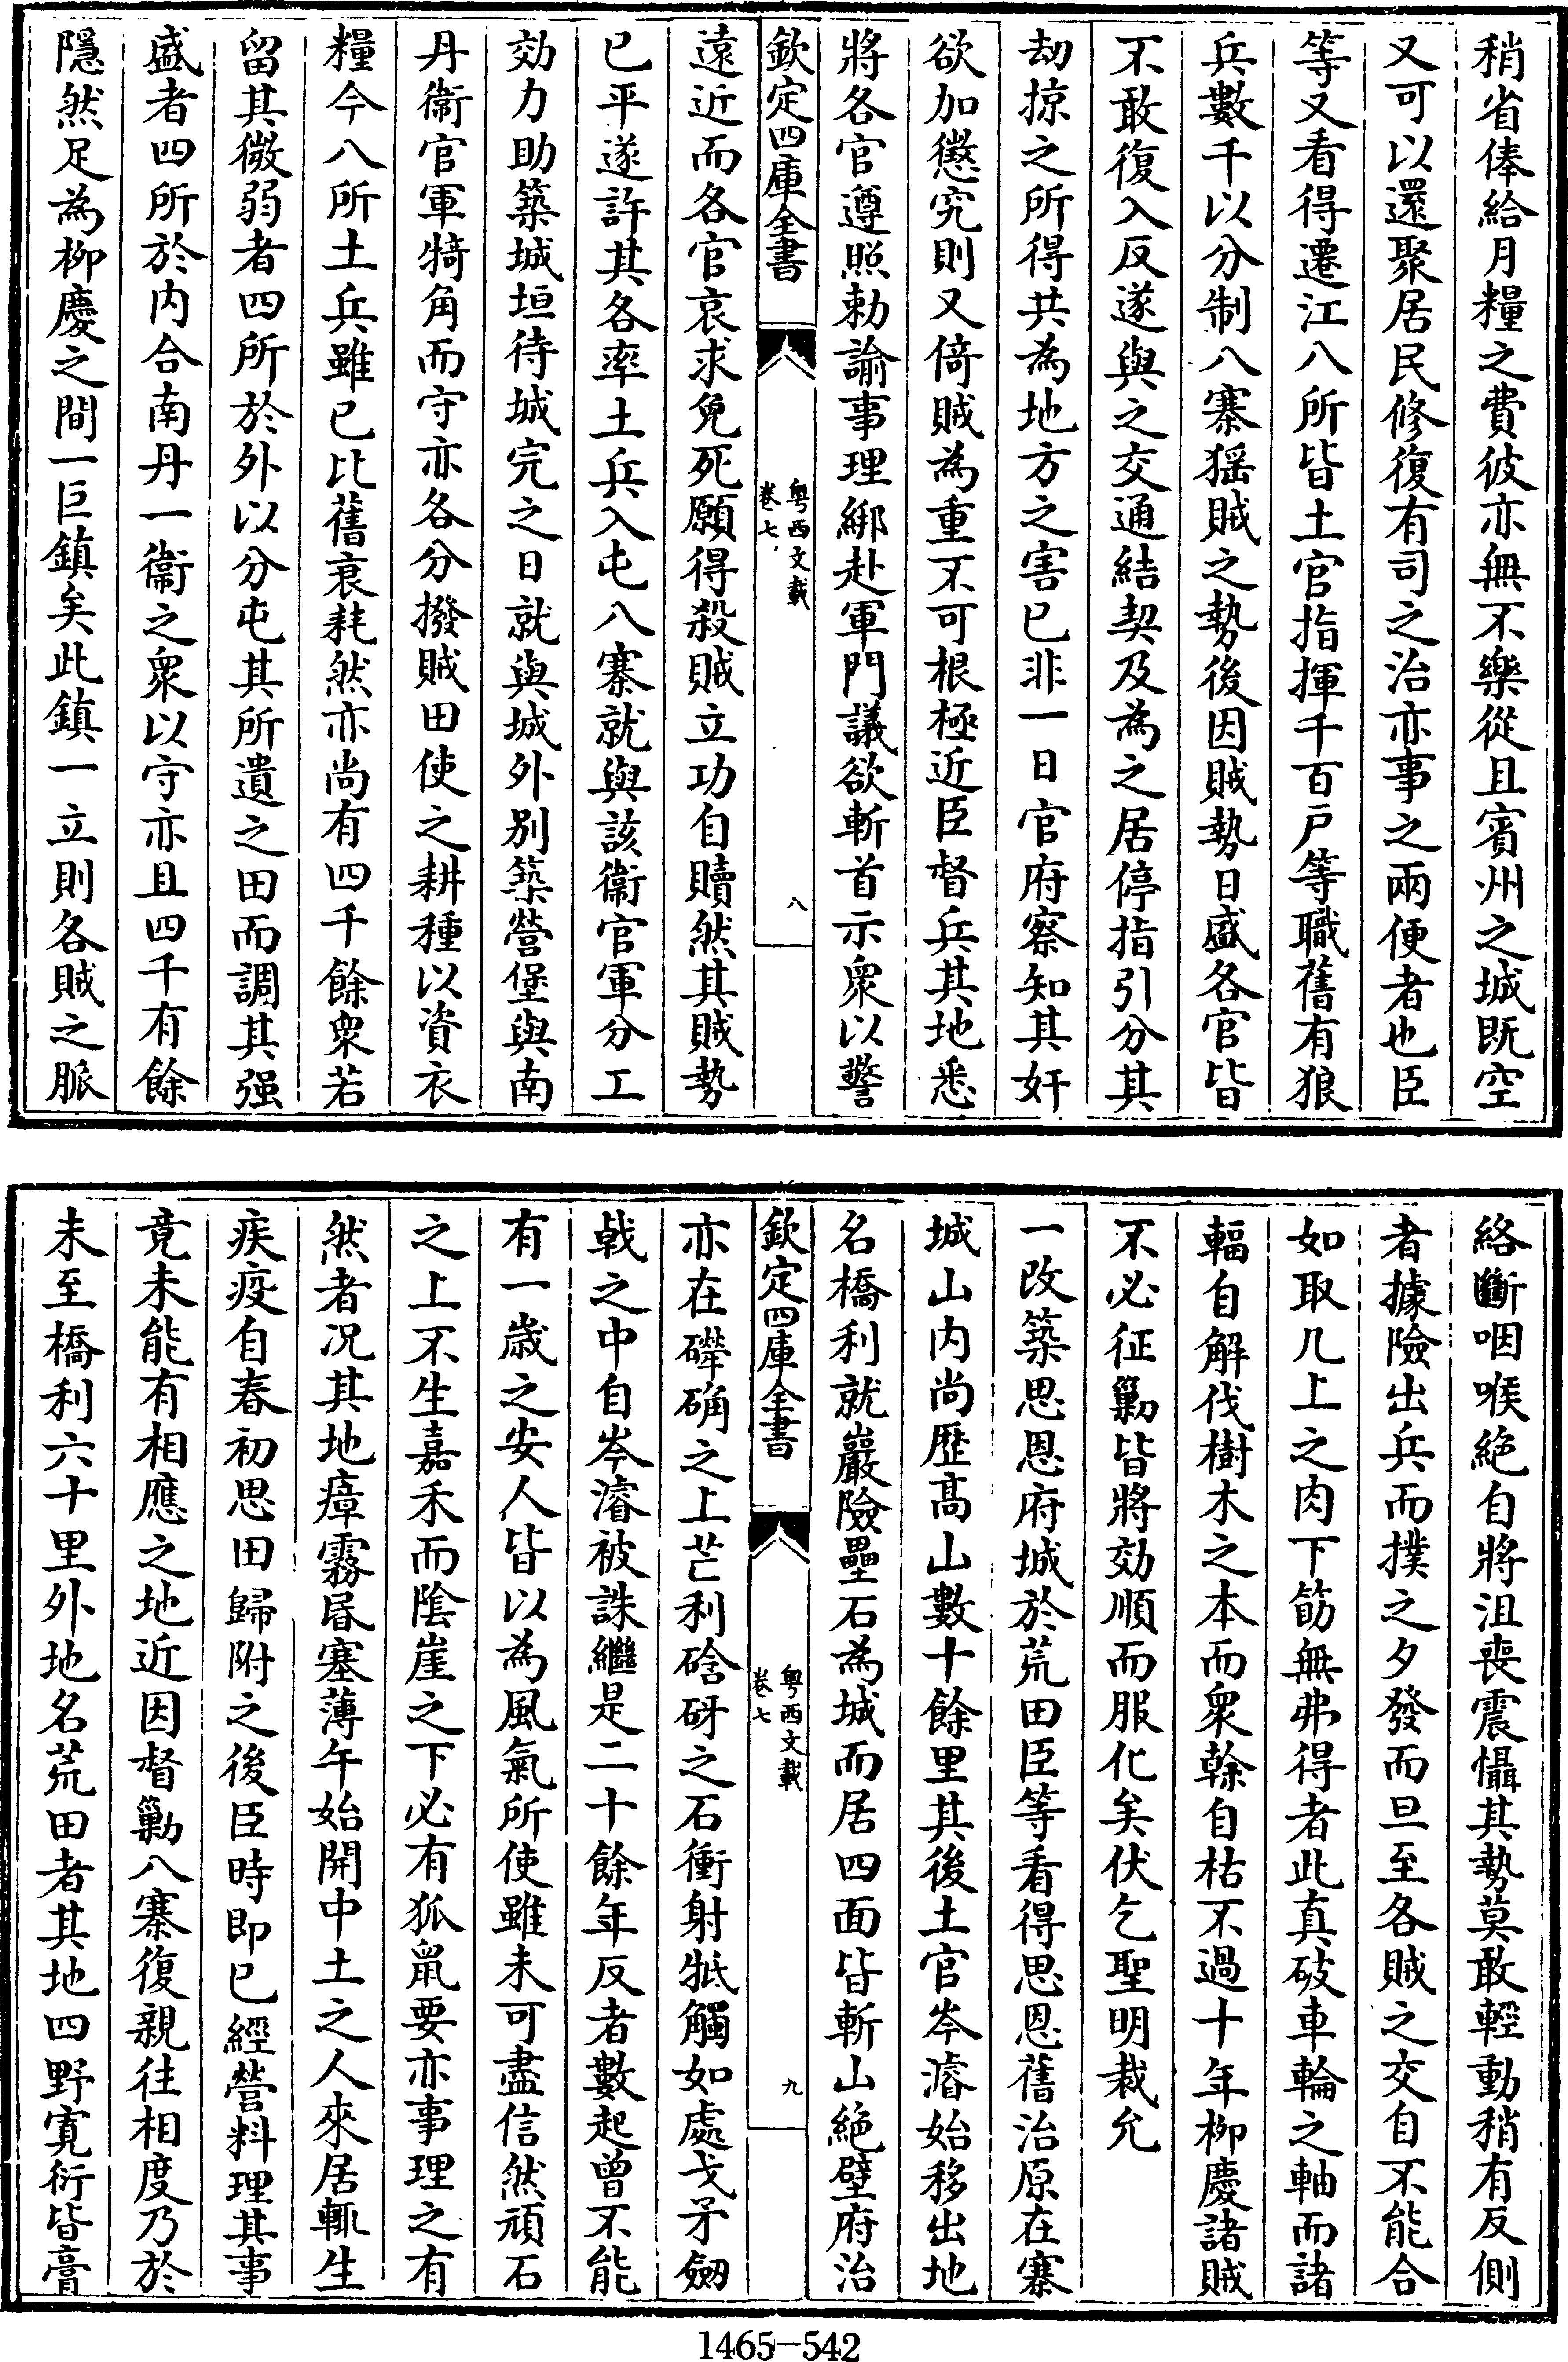 稍省俸給月糧之費彼亦無不樂從且賓州之城既空
又可以還聚居民修復有司之治亦事之兩便者也臣
等又看得遷江八所皆土官指揮千百戶等職舊有狼
兵數千以分制八寨猺賊之勢後因賊勢日盛各官皆
不敢復入反遂與之交通結契及為之居停指引分其
刼掠之所得共為地方之害已非一日官府察知其奸
欲加懲究則又倚賊為重不可根極近臣督兵其地悉
將各官遵照勅諭事理綁赴軍門議欲斬首示衆以警
欽定四庫全書
粵西文載
卷七
八
遠近而各官哀求免死願得殺賊立功自贖然其賊勢
已平遂許其各率土兵入屯八寨就與該衞官軍分工
効力助築城垣待城完之日就與城外别築營堡與南
丹衞官軍犄角而守亦各分撥賊田使之耕種以資衣
糧今八所土兵雖已比舊衰耗然亦尚有四千餘衆若
留其微弱者四所於外以分屯其所遺之田而調其强
盛者四所於内合南丹一衞之衆以守亦且四千有餘
隱然足為柳慶之間一巨鎮矣此鎮一立則各賊之脈
絡斷咽喉絶自將沮喪震懾其勢莫敢輕動稍有反側
者據險出兵而撲之夕發而旦至各賊之交自不能合
如取几上之肉下筯無弗得者此真破車輪之軸而諸
輻自解伐樹木之本而衆榦自枯不過十年柳慶諸賊
不必征勦皆將効順而服化矣伏乞聖明裁允
一改築思恩府城於荒田臣等看得思恩舊治原在寨
城山内尚歴髙山數十餘里其後土官岑濬始移出地
名橋利就巖險壘石為城而居四面皆斬山絶壁府治
欽定四庫全書
粵西文載
卷七
九
亦在礫确之上芒利硌砑之石衝射牴觸如處戈矛劒
戟之中自岑濬被誅繼是二十餘年反者數起曾不能
有一歳之安人皆以為風氣所使雖未可盡信然頑石
之上不生嘉禾而陰崖之下必有狐鼠要亦事理之有
然者况其地瘴霧昬塞薄午始開中土之人來居輒生
疾疫自春初思田歸附之後臣時即已經營料理其事
竟未能有相應之地近因督勦八寨復親往相度乃於
未至橋利六十里外地名荒田者其地四野寛衍皆膏
1465-542